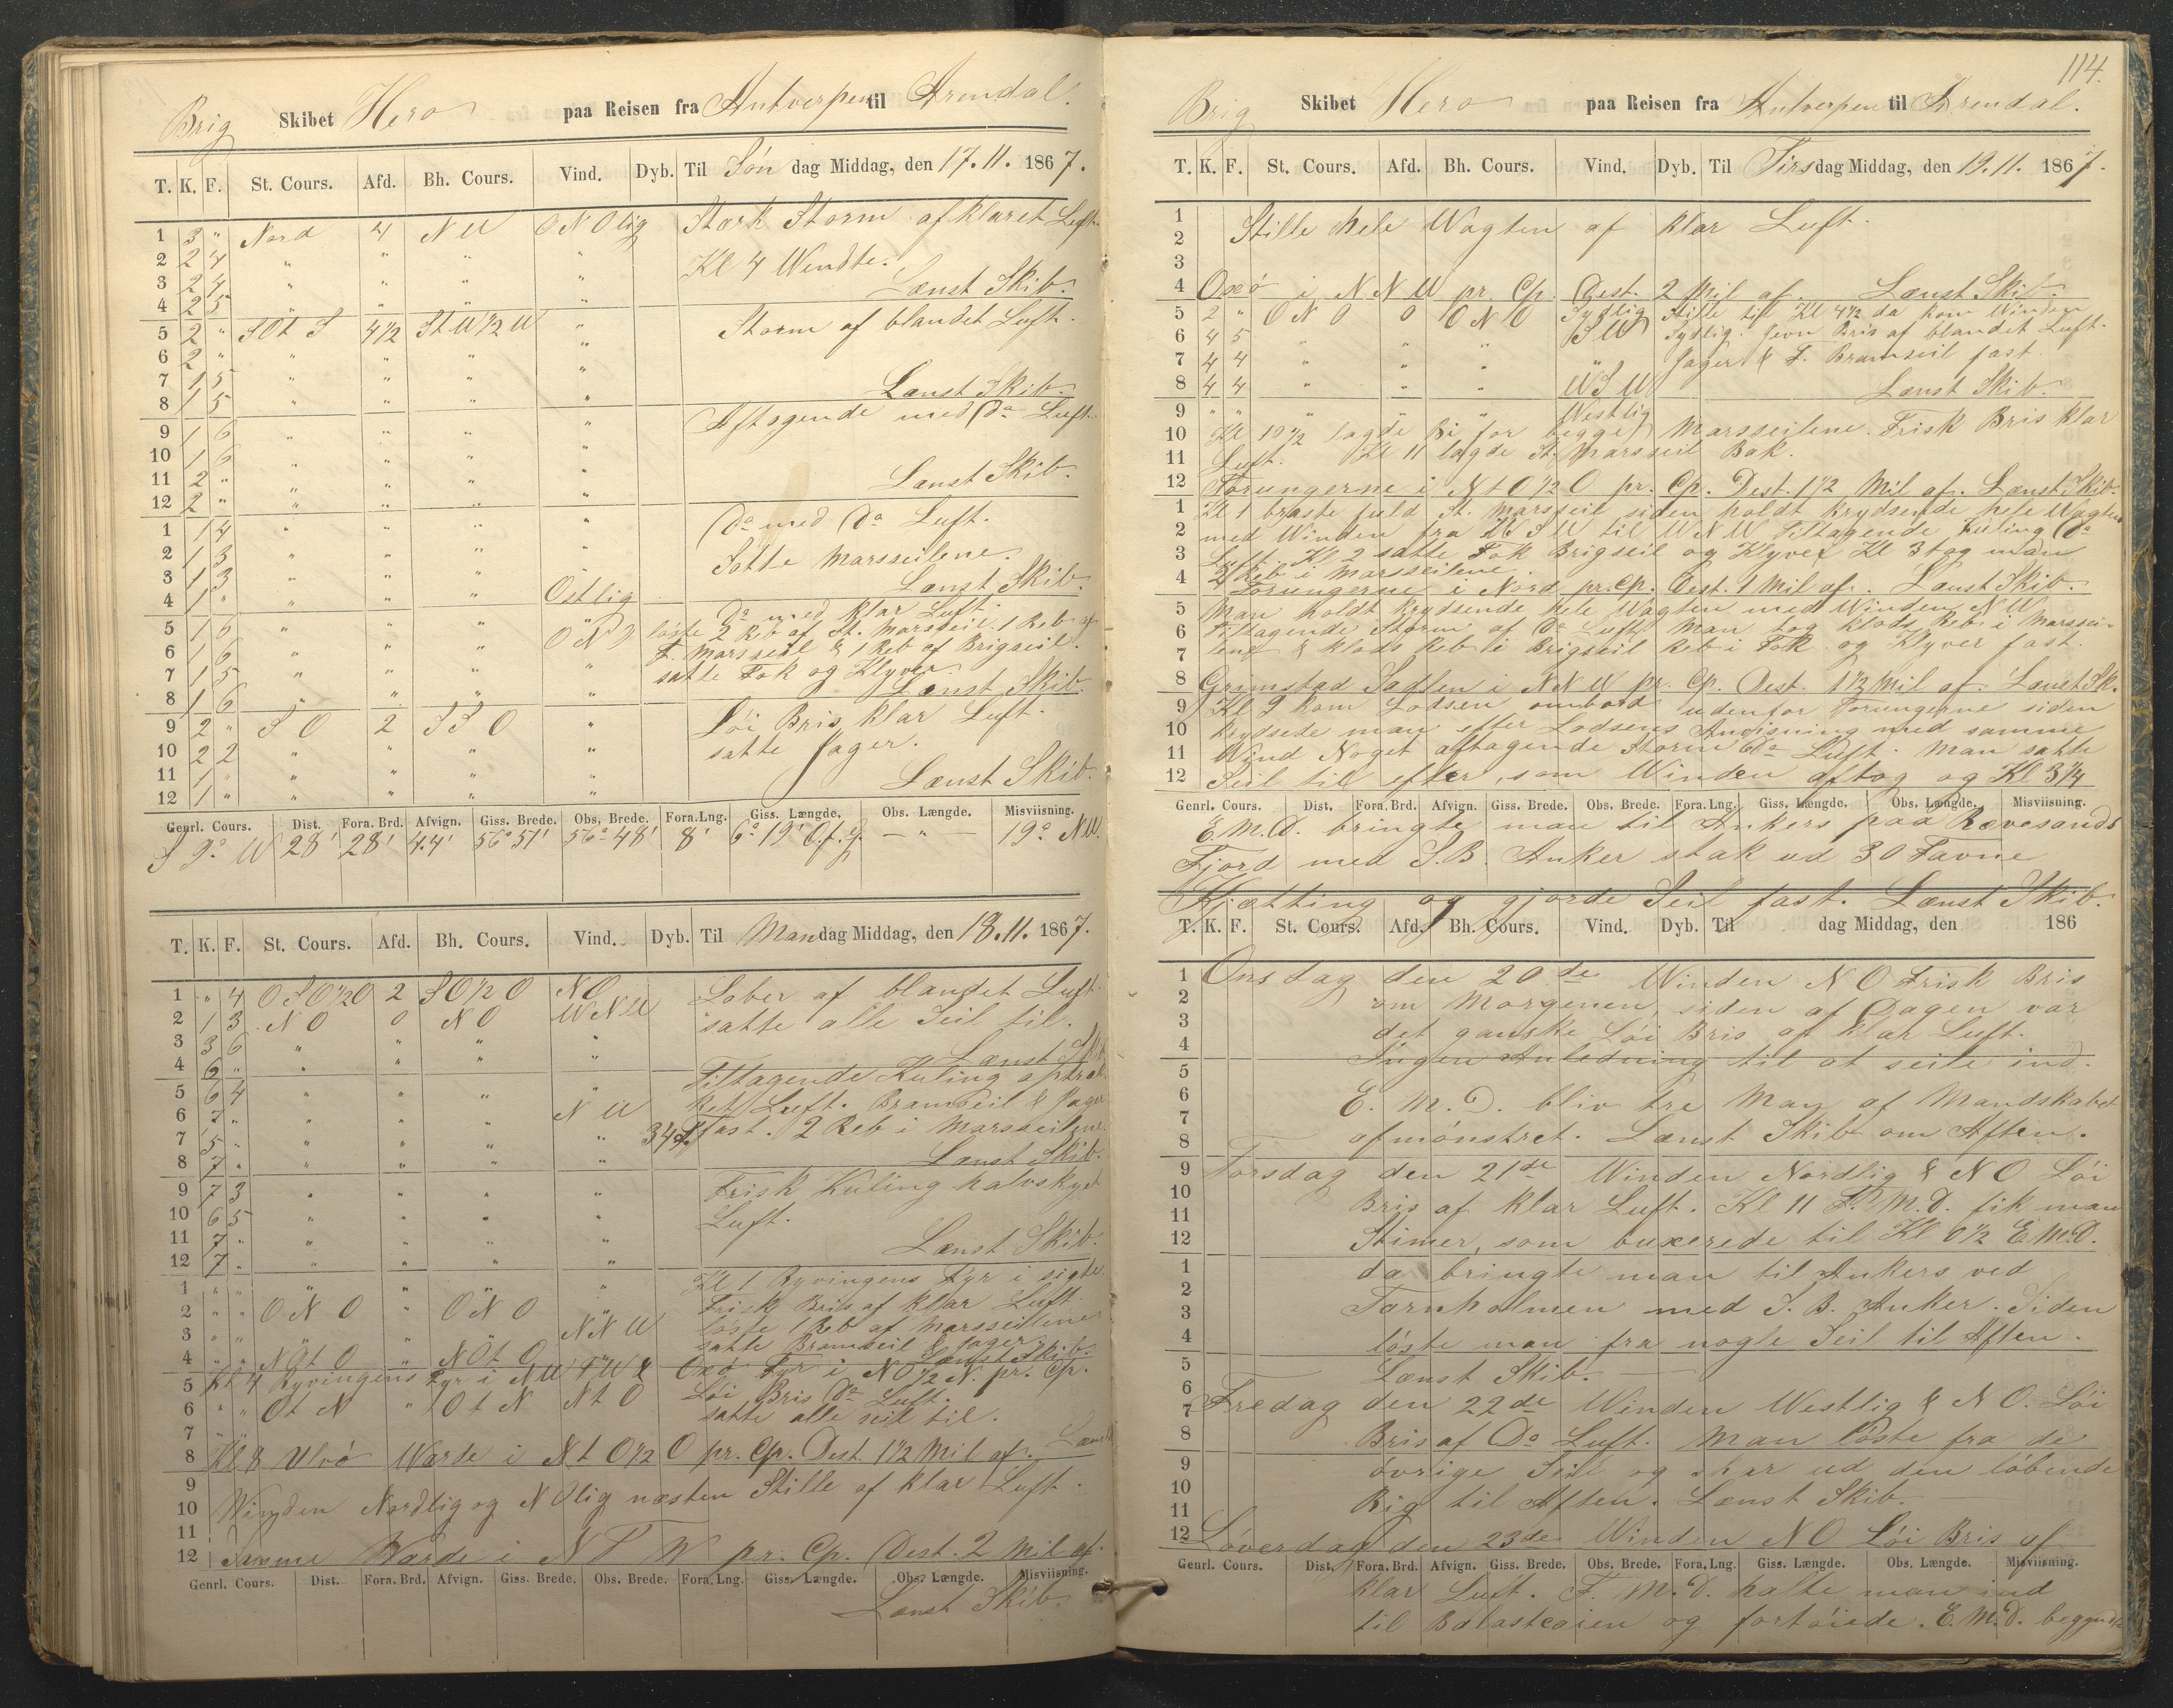 Brig Skibet Hero paa Reisen fra Antverpen til Arendal.
T. K. F. St. Cours. Afd. Bh. Cours. Vind. Dyb. Til Søn dag Middag, den 17.11. 1867.
1 3 " Nord 4 NW ONOlig Stærk Storm af klaret Luft.
2 2 4 " " " "
3 2 4 " " " " Kl 4 Wendte.
4 2 5 " " " " Lænst Skib.
5 2 " SOt S 4 1/2 St W 1/2 W " Storm af blandet Luft.
6 2 " " " " "
7 1 5 " " " "
8 1 5 " " " " Lænst Skib.
9 1 6 " " " " Aftagende med Do Luft.
10 1 6 " " " "
11 2 " " " " "
12 2 " " " " " Lænst Skib.
1 1 4 " " " " Do med Do Luft.
2 1 3 " " " " Satte Marsseilene.
3 1 3 " " " "
4 1 " " " " Ostlig Lænst Skib.
5 1 6 " " " " Do med klar Luft.
6 1 6 " " " ONO løste 2 Reb af St. Marsseil, 1 Reb af
7 1 5 " " " " F. Marsseil & 1 Reb af Brigseil.
8 1 6 " " " " satte Fok og Klyver. Lænst Skib.
9 2 " S O 2 SSO " Løi Bris klar Luft.
10 2 2 " " " " satte Jager.
11 1 " " " " "
12 1 " " " " " Lænst Skib.
Genrl. Cours. Dist. Fora. Brd. Afvign. Giss. Brede. Obs. Brede. Fora. Lng. Giss. Længde. Obs. Længde. Misviisning.
S 9° W 28' 28' 4.4' 56° 51' 56° 48' 8' 6° 19' O.f.g. — " — 19° NW.
T. K. F. St. Cours. Afd. Bh. Cours. Vind. Dyb. Til Mandag Middag, den 18.11. 1867.
1 " 4 OSO 1/2 O 2 SO 1/2 O NO Laber af blandet Luft.
2 1 3 NO 0 NO WNW satte alle Seil til.
3 3 6 " " " "
4 6 " " " " " Lænst Skib
5 6 4 " " " " Tiltagende Kuling af trak-
6 7 " " " " NW ket Luft. Bramseil & Jager
7 5 " " " " " 34 fast. 2 Reb i Marsseilene.
8 7 " " " " " Lænst Skib.
9 7 3 " " " " Frisk Kuling halvskyet
10 6 5 " " " " Luft.
11 7 " " " " "
12 7 " " " " " Lænst Skib.
1 " " " " " " Kl 1 Ryvingens Fyr i sigte
2 " " ONO " ONO " Frisk Bris af klar Luft.
3 " " " " " NNW løste 1 Reb af Marsseilene
4 " " NOt O " NOt O satte Bramseil & Jager Lænst Skib.
5 Kl 4 Ryvingens Fyr i NWTW & Oxø Fyr i NO 1/2 N. pr. Cp.
6 " " Ot N " Ot N Nt O Løi Bris Do Luft.
7 " " satte alle seil til.
8 Kl 8 Ulvø Warde i Nt O 1/2 O pr. Cp. Dest. 1 1/2 Mil af. Lænst
9
10 Winden Nordlig og NOlig næsten Stille af klar Luft.
11
12 Samme Warde i NTW pr. Cp. Dest. 2 Mil af.
Genrl. Cours. Dist. Fora. Brd. Afvign. Giss. Brede. Obs. Brede. Fora. Lng. Giss. Længde. Obs. Længde. Misviisning.
Lænst Skib.
114.
Brig Skibet Hero paa Reisen fra Antverpen til Arendal.
T. K. F. St. Cours. Afd. Bh. Cours. Vind. Dyb. Til Tirsdag Middag, den 19.11. 1867.
1
2 Stille hele Wagten af klar Luft.
3
4 Oxø i NNW pr. Cp. Dest. 2 Mil af. Lænst Skib.
5 2 " ONO 0 ONO Sydlig Stille til Kl 4 1/2 da kom Winden
6 4 5 " " " SW Sydlig. Jevn Bris af blandet Luft.
7 4 4 " " " " Jager & F. Bramseil fast
8 4 4 " " " WSW Lænst Skib.
9 " " " " " Westlig
10 Kl 10 1/2 lagde Bi for begge Marsseilene. Frisk Bris klar
11 Luft. Kl 11 lagde St. Marsseil Bak.
12 Torungerne i Nt O 1/2 O pr. Cp. Dest. 1 1/2 Mil af. Lænst Skib.
1 Kl 1 braste fuld St. Marsseil siden holdt krydsende hele Wagten
2 med Winden fra WSW til WNW Tiltagende Kuling Do
3 Luft. Kl 2 satte Fok Brigseil og Klyver Kl 3 tog man
4 2 Reb i Marsseilene.
Torungerne i Nord pr. Cp. Dest. 1 Mil af. Lænst Skib.
5 Man holdt krydsende hele Wagten med Winden NW
6 Tiltagende Storm af Do Luft, Man tog klods Reb i Marssei-
7 lene & klods Reb i Brigseil Reb i Fok og Klyver fast.
8 Grimstad Sadlen i NNW pr. Cp. Dest. 1 1/2 Mil af. Lænst Sk.
9 Kl 9 kom Lodsen ombord udenfor Torungerne siden
10 krydsede man efter Lodsens Anvisning med samme
11 Wind Noget aftagende Storm Do Luft. Man satte
12 Seil til efter, som Winden aftog og Kl 3 1/4
Genrl. Cours. Dist. Fora. Brd. Afvign. Giss. Brede. Obs. Brede. Fora. Lng. Giss. Længde. Obs. Længde. Misviisning.
E.M.D. bringte man til Ankers paa Rævesands
Fjord med S.B. Anker stak ud 30 Favne
Kjætting og gjorde Seil fast. Lænst Skib.
T. K. F. St. Cours. Afd. Bh. Cours. Vind. Dyb. Til dag Middag, den 186
1 Onsdag den 20de Winden NO Frisk Bris
2 om Morgenen, siden af Dagen var
3 det ganske Løi Bris af klar Luft.
4 Ingen Anledning til at seile ind.
5
6 E. M. D. bliv tre Man af Mandskabet
7
8 afmønstret. Lænst Skib om Aften.
9 Torsdag den 21de Winden Nordlig & NO Løi
10 Bris af klar Luft. Kl 11 F. M. D. fik man
11
12 Stimer, som buxerede til Kl 0 1/2 E.M.D.
1 da bringte man til Ankers ved
2
3 Tarnholmen med S. B. Anker. Siden
4 løste man fra nogle Seil til Aften.
5 Lænst Skib. —
6
7 Fredag den 22de Winden Westlig & NO. Løi
8 Bris af Do Luft. Man løste fra de
9 øvrige Seil og skar ud den løbende
10
11 Rig til Aften. Lænst Skib. —
12 Løverdag den 23de Winden NO Løi Bris af
Genrl. Cours. Dist. Fora. Brd. Afvign. Giss. Brede. Obs. Brede. Fora. Lng. Giss. Længde. Obs. Længde. Misviisning.
klar Luft. F. M. D. halte man ind
til Balastcaien og fortøiede. E.M.D. begyndte